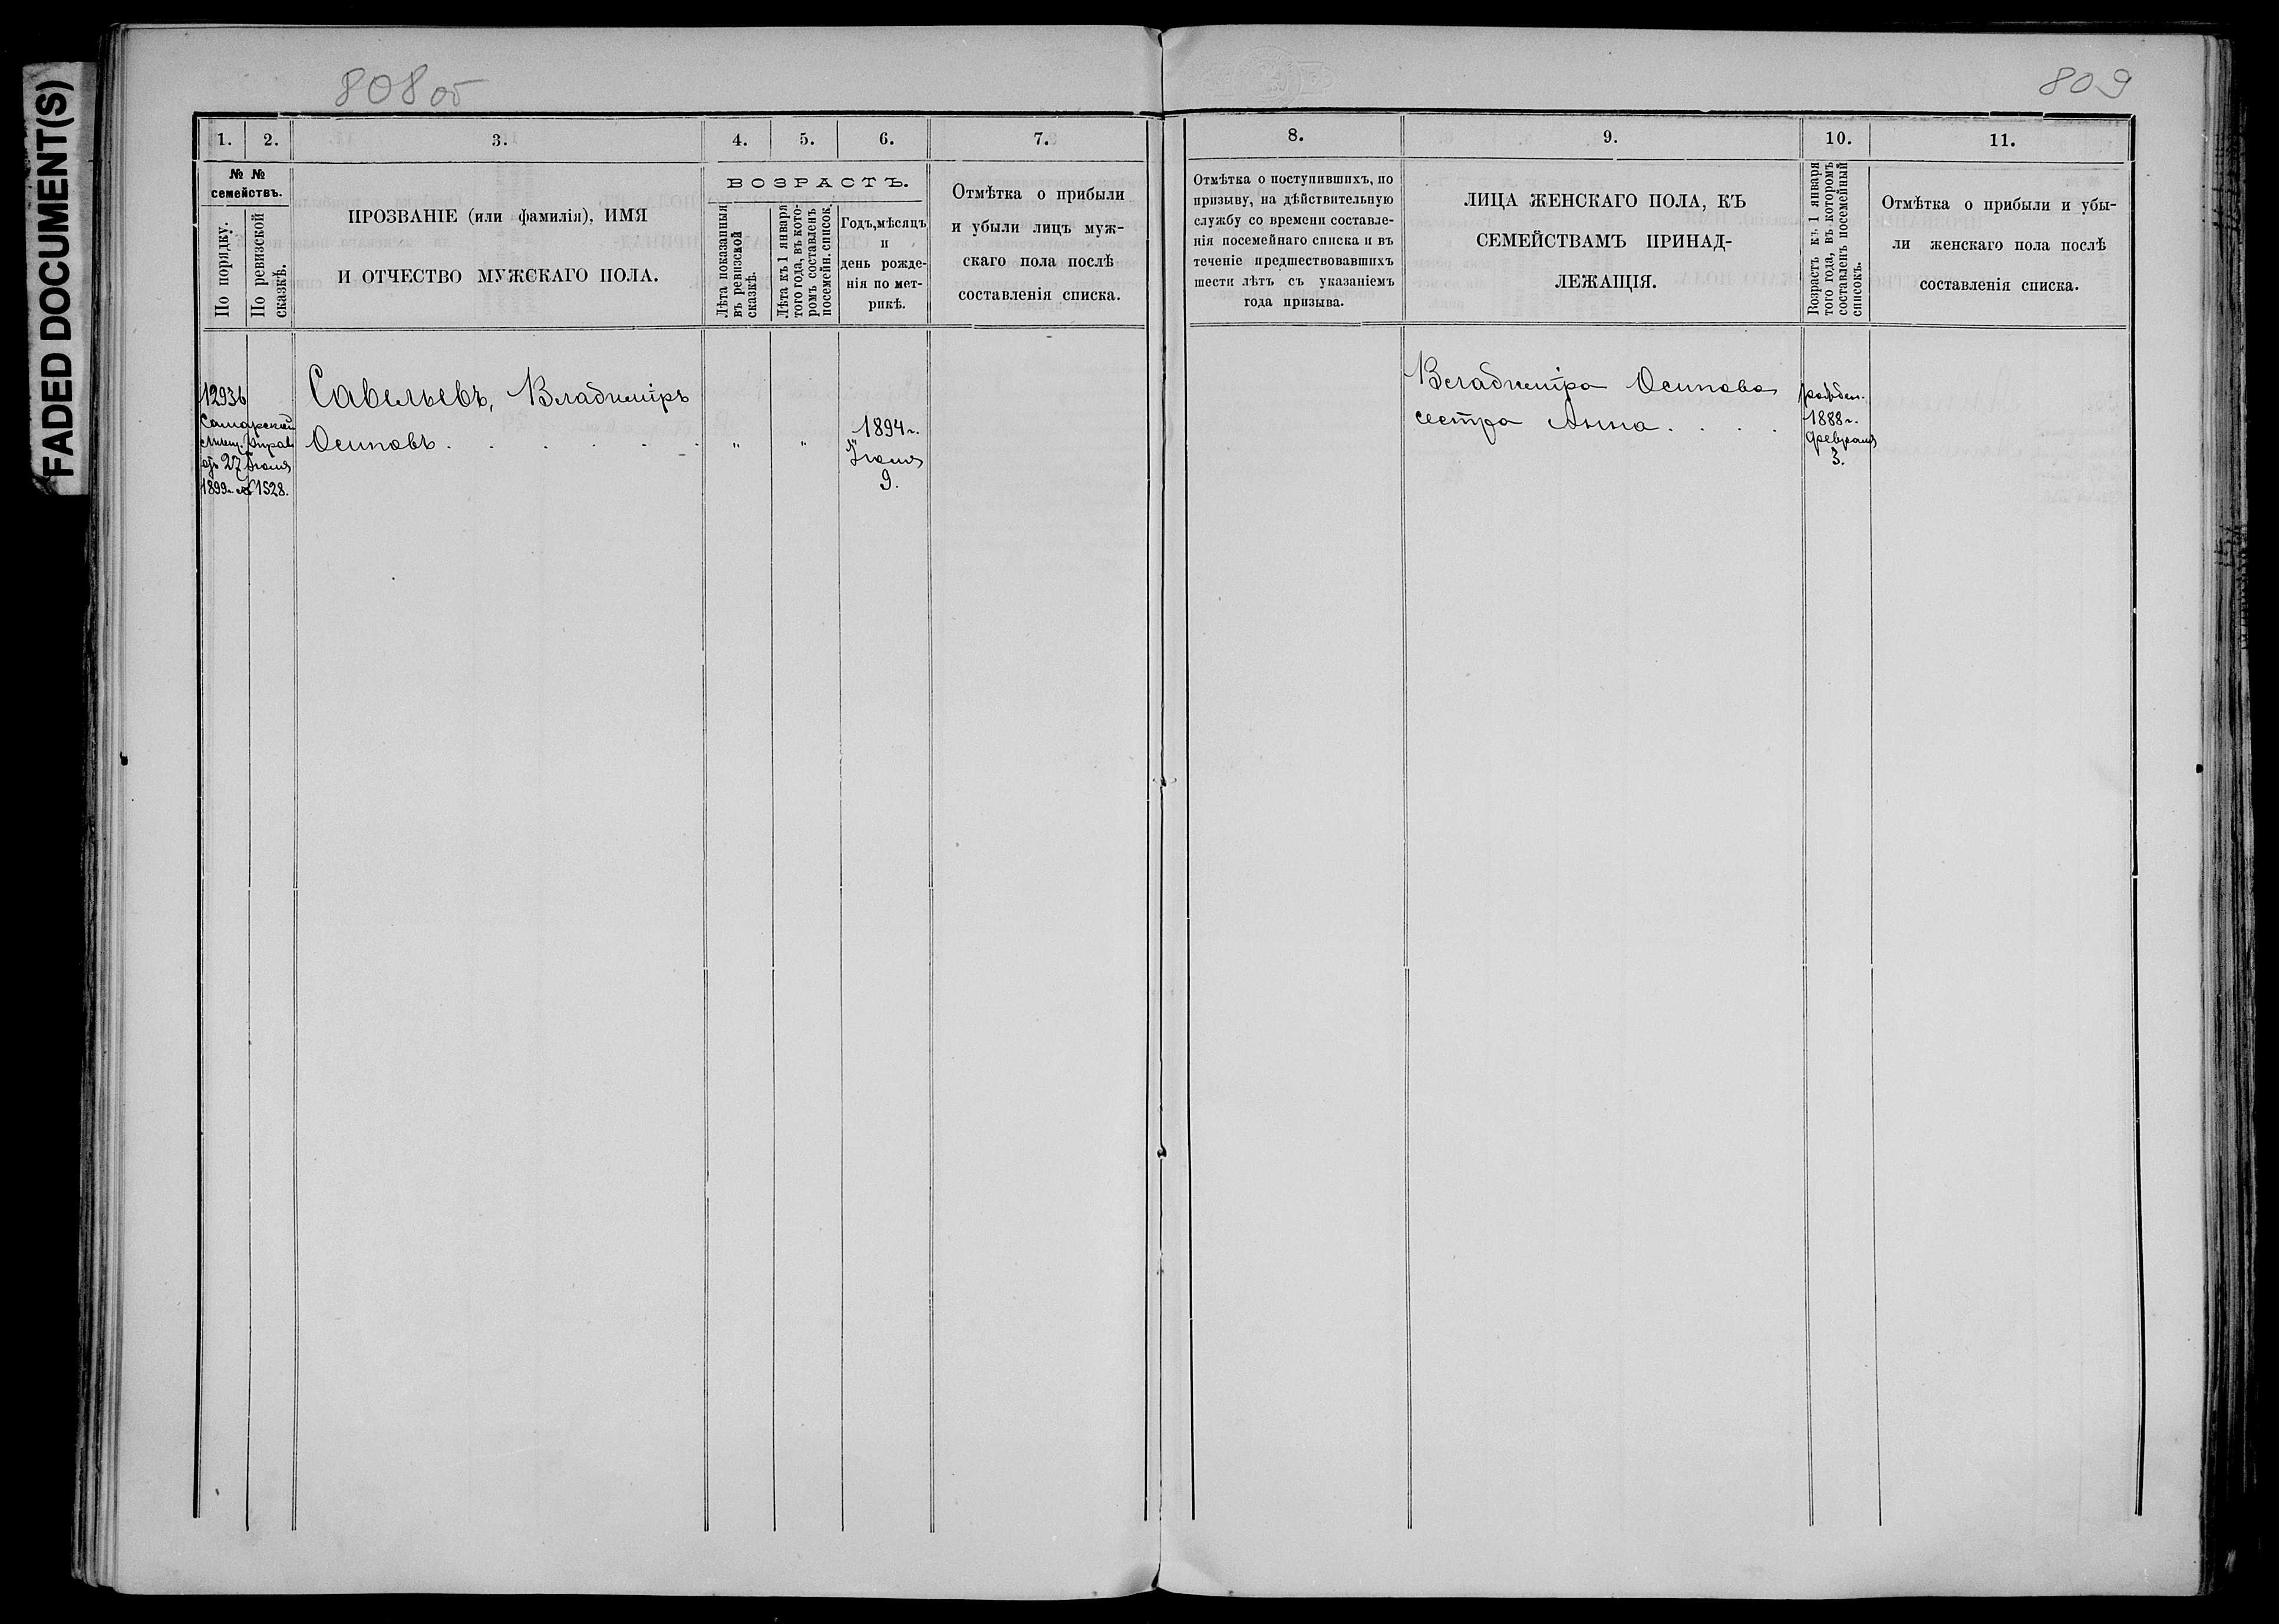 FADED DOCUMENT(S)
808 об
809
1. 2. 3. 4. 5. 6. 7.
№ №
семействъ.
По порядку.
По ревизской
сказкѣ.
ПРОЗВАНІЕ (или фамилія), ИМЯ
И ОТЧЕСТВО МУЖСКАГО ПОЛА.
ВОЗРАСТЪ.
Лѣта показанныя
въ ревизской
сказкѣ.
Лѣта къ 1 января
того года, въ кото-
ромъ составленъ
посемейн. список.
Годъ, мѣсяцъ
и
день рожде-
нія по мет-
рикѣ.
Отмѣтка о прибыли
и убыли лицъ муж-
скаго пола послѣ
составленія списка.
12936
Самарской
мѣщ. Управы
отъ 27 Іюля
1899 г. № 1528.
Савельевъ, Владиміръ
Осиповъ . . . . .
" "
1894 г.
Іюля
9.
8. 9. 10. 11.
Отмѣтка о поступившихъ, по
призыву, на дѣйствительную
службу со времени составле-
нія посемейнаго списка и въ
теченіе предшествовавшихъ
шести лѣтъ съ указаніемъ
года призыва.
ЛИЦА ЖЕНСКАГО ПОЛА, КЪ
СЕМЕЙСТВАМЪ ПРИНАД-
ЛЕЖАЩІЯ.
Возрастъ къ 1 января
того года, въ которомъ
составленъ посемейный
списокъ.
Отмѣтка о прибыли и убы-
ли женскаго пола послѣ
составленія списка.
Владиміра Осипова
сестра Анна . . . .
рожден.
1888 г.
Февраля
3.